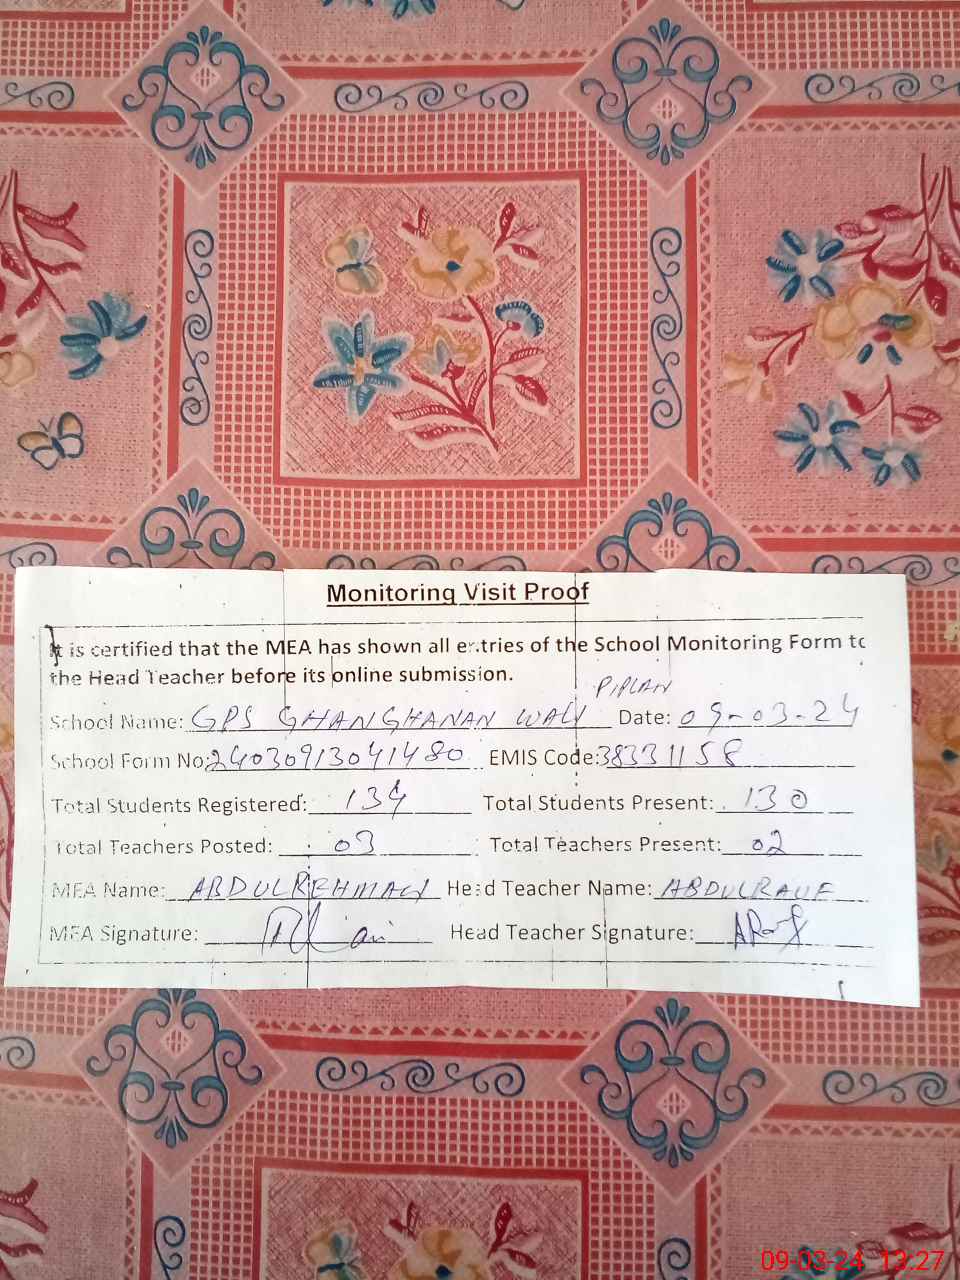 Monitoring Visit Proof
It is certified that the MEA has shown all entries of the School Monitoring Form to
the Head Teacher before its online submission.
PIPLAN
School Name: GPS GHANGHANAN WALI Date: 09-03-24
School Form No: 24030913041480 EMIS Code: 38331158
Total Students Registered: 134 Total Students Present: 130
Total Teachers Posted: 03 Total Teachers Present: 02
MEA Name: ABDULREHMAN Head Teacher Name: ABDULRAUF
MEA Signature: Head Teacher Signature:
09-03-24 13:27